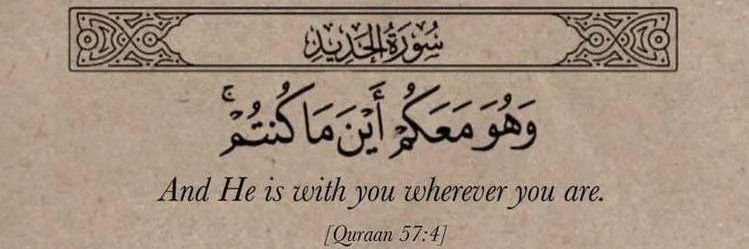 سُورَةُ الحَدِيدِ
وَهُوَ مَعَكُمْ أَيْنَ مَا كُنتُمْ ۚ
And He is with you wherever you are.
[Quraan 57:4]